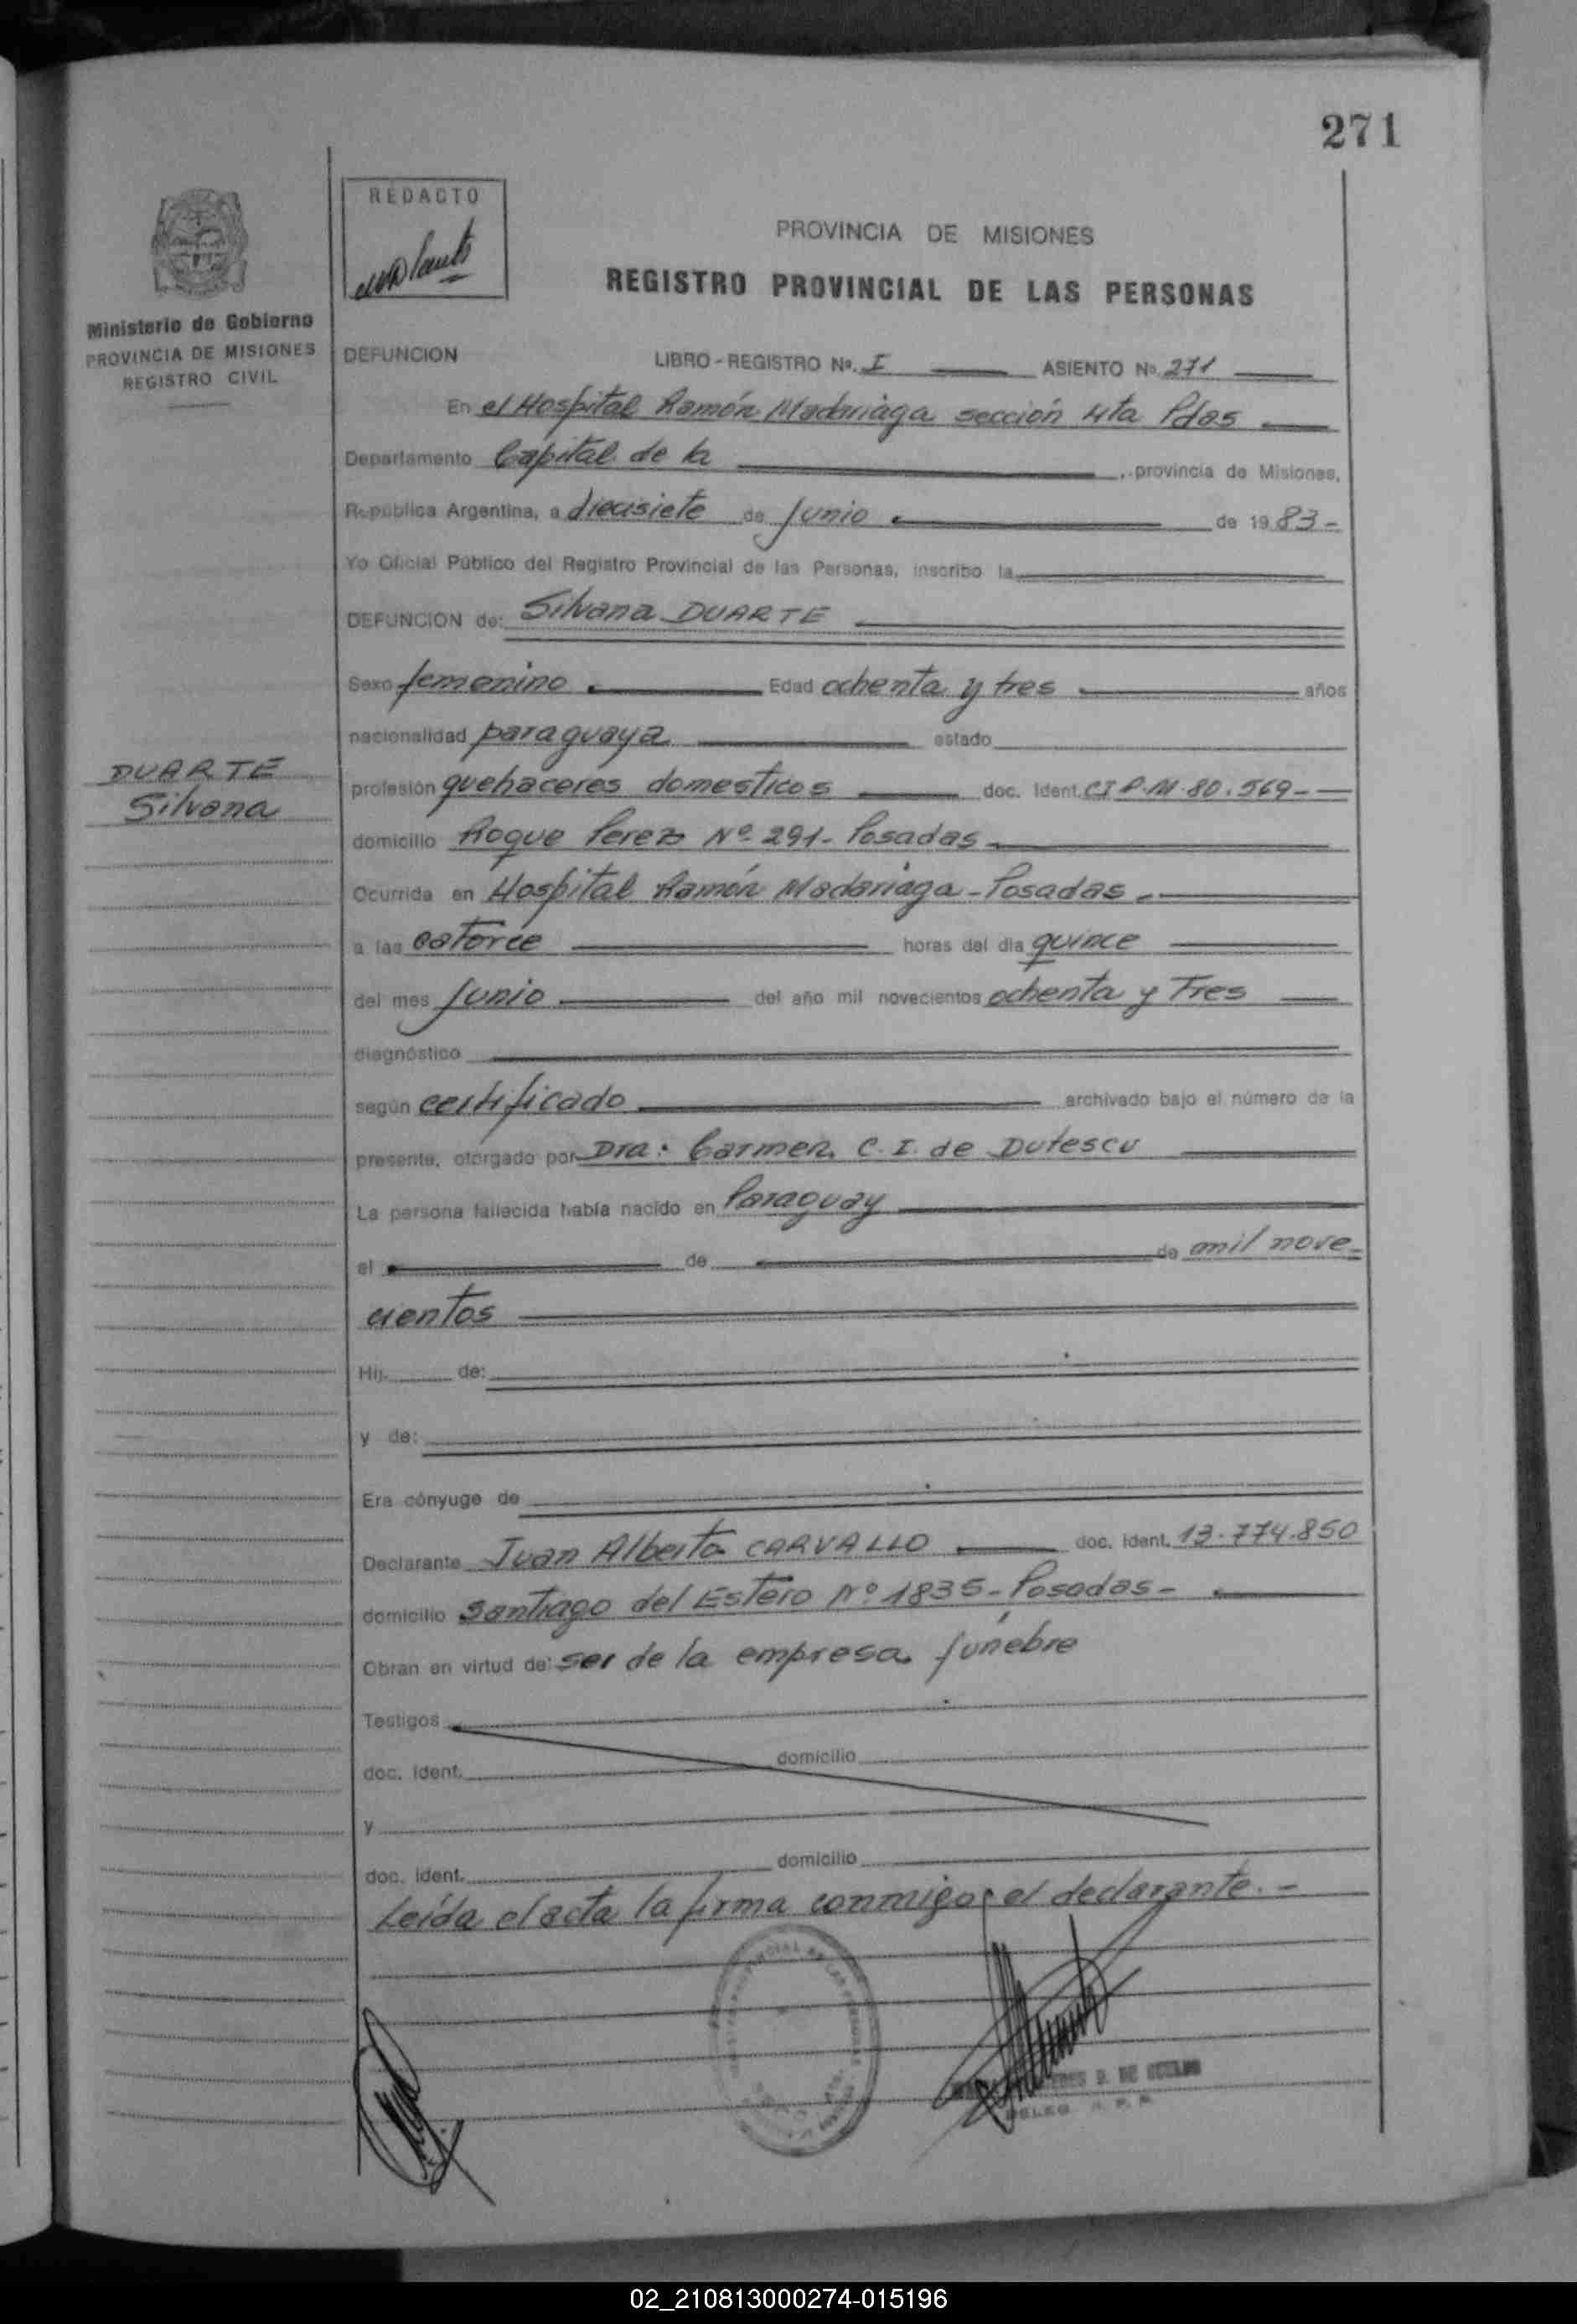 271
REDACTO
PROVINCIA DE MISIONES
REGISTRO PROVINCIAL DE LAS PERSONAS
Ministerio de Gobierno
PROVINCIA DE MISIONES
REGISTRO CIVIL
DEFUNCION LIBRO-REGISTRO Nº. I ASIENTO Nº. 271
En el Hospital Ramón Madariaga sección 4ta Pdas
Departamento Capital de la , provincia de Misiones,
República Argentina, a diecisiete de Junio de 1983-
Yo Oficial Público del Registro Provincial de las Personas, inscribo la
DEFUNCION de: Silvana DUARTE
Sexo femenino Edad ochenta y tres años
nacionalidad paraguaya estado
DUARTE
Silvana
profesión quehaceres domesticos doc. Ident. CI P.M. 80.569-
domicilio Roque Perez Nº 291- Posadas
Ocurrida en Hospital Ramón Madariaga-Posadas
a las catorce horas del día quince
del mes Junio del año mil novecientos ochenta y Tres
diagnóstico
según certificado archivado bajo el número de la
presente, otorgado por Dra: Carmen C. I. de Dutescu
La persona fallecida había nacido en Paraguay
el de de mil nove-
cientos
Hij de:
y de:
Era cónyuge de
Declarante Juan Alberto CARVALLO doc. Ident. 13.774.850
domicilio Santiago del Estero Nº 1835- Posadas-
Obran en virtud de: ser de la empresa fúnebre
Testigos
doc. Ident. domicilio
y
doc. Ident. domicilio
Leída el acta la firma conmigo, el declarante.-
D. DE
DELEG. R. P. P.
02_210813000274-015196